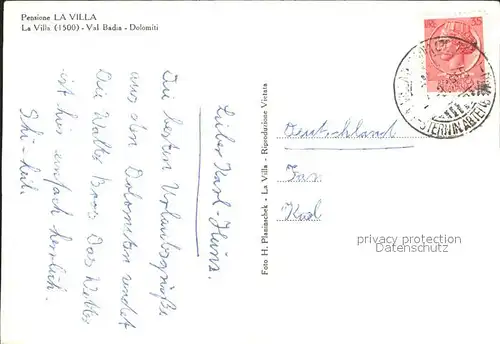 Pensione LA VILLA
La Villa (1500) - Val Badia - Dolomiti
Lieber Karl-Heinz.
Die besten Urlaubsgrüße
aus den Dolomiten sendet
Dir Walter Das Wetter
ist hier einfach herrlich.
Schi-heil.
Foto H. Planinschek - La Villa - Riproduzione Vietata
Deutschland
Karl
privacy protection
AnsichtskartenVersand.com